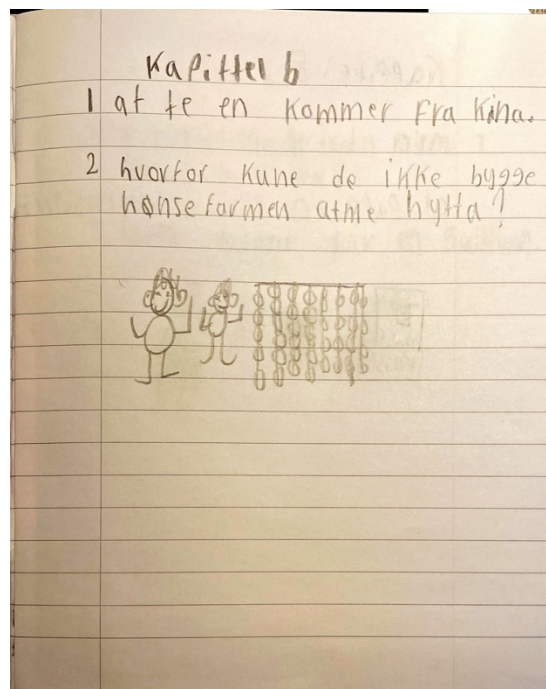 Kapittel 6
1 at te en kommer fra kina.
2 hvorfor kune de ikke bygge
hønsefarmen hytta?